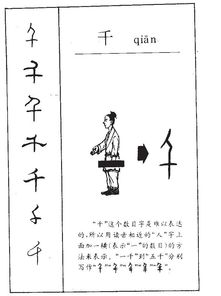 千 qiān
“千”这个数目字是难以表达
的,所以用读音相近的“人”字上
面加一横(表示“一”的数目)的方
法来表示。“一千”到“五千”分别
写作